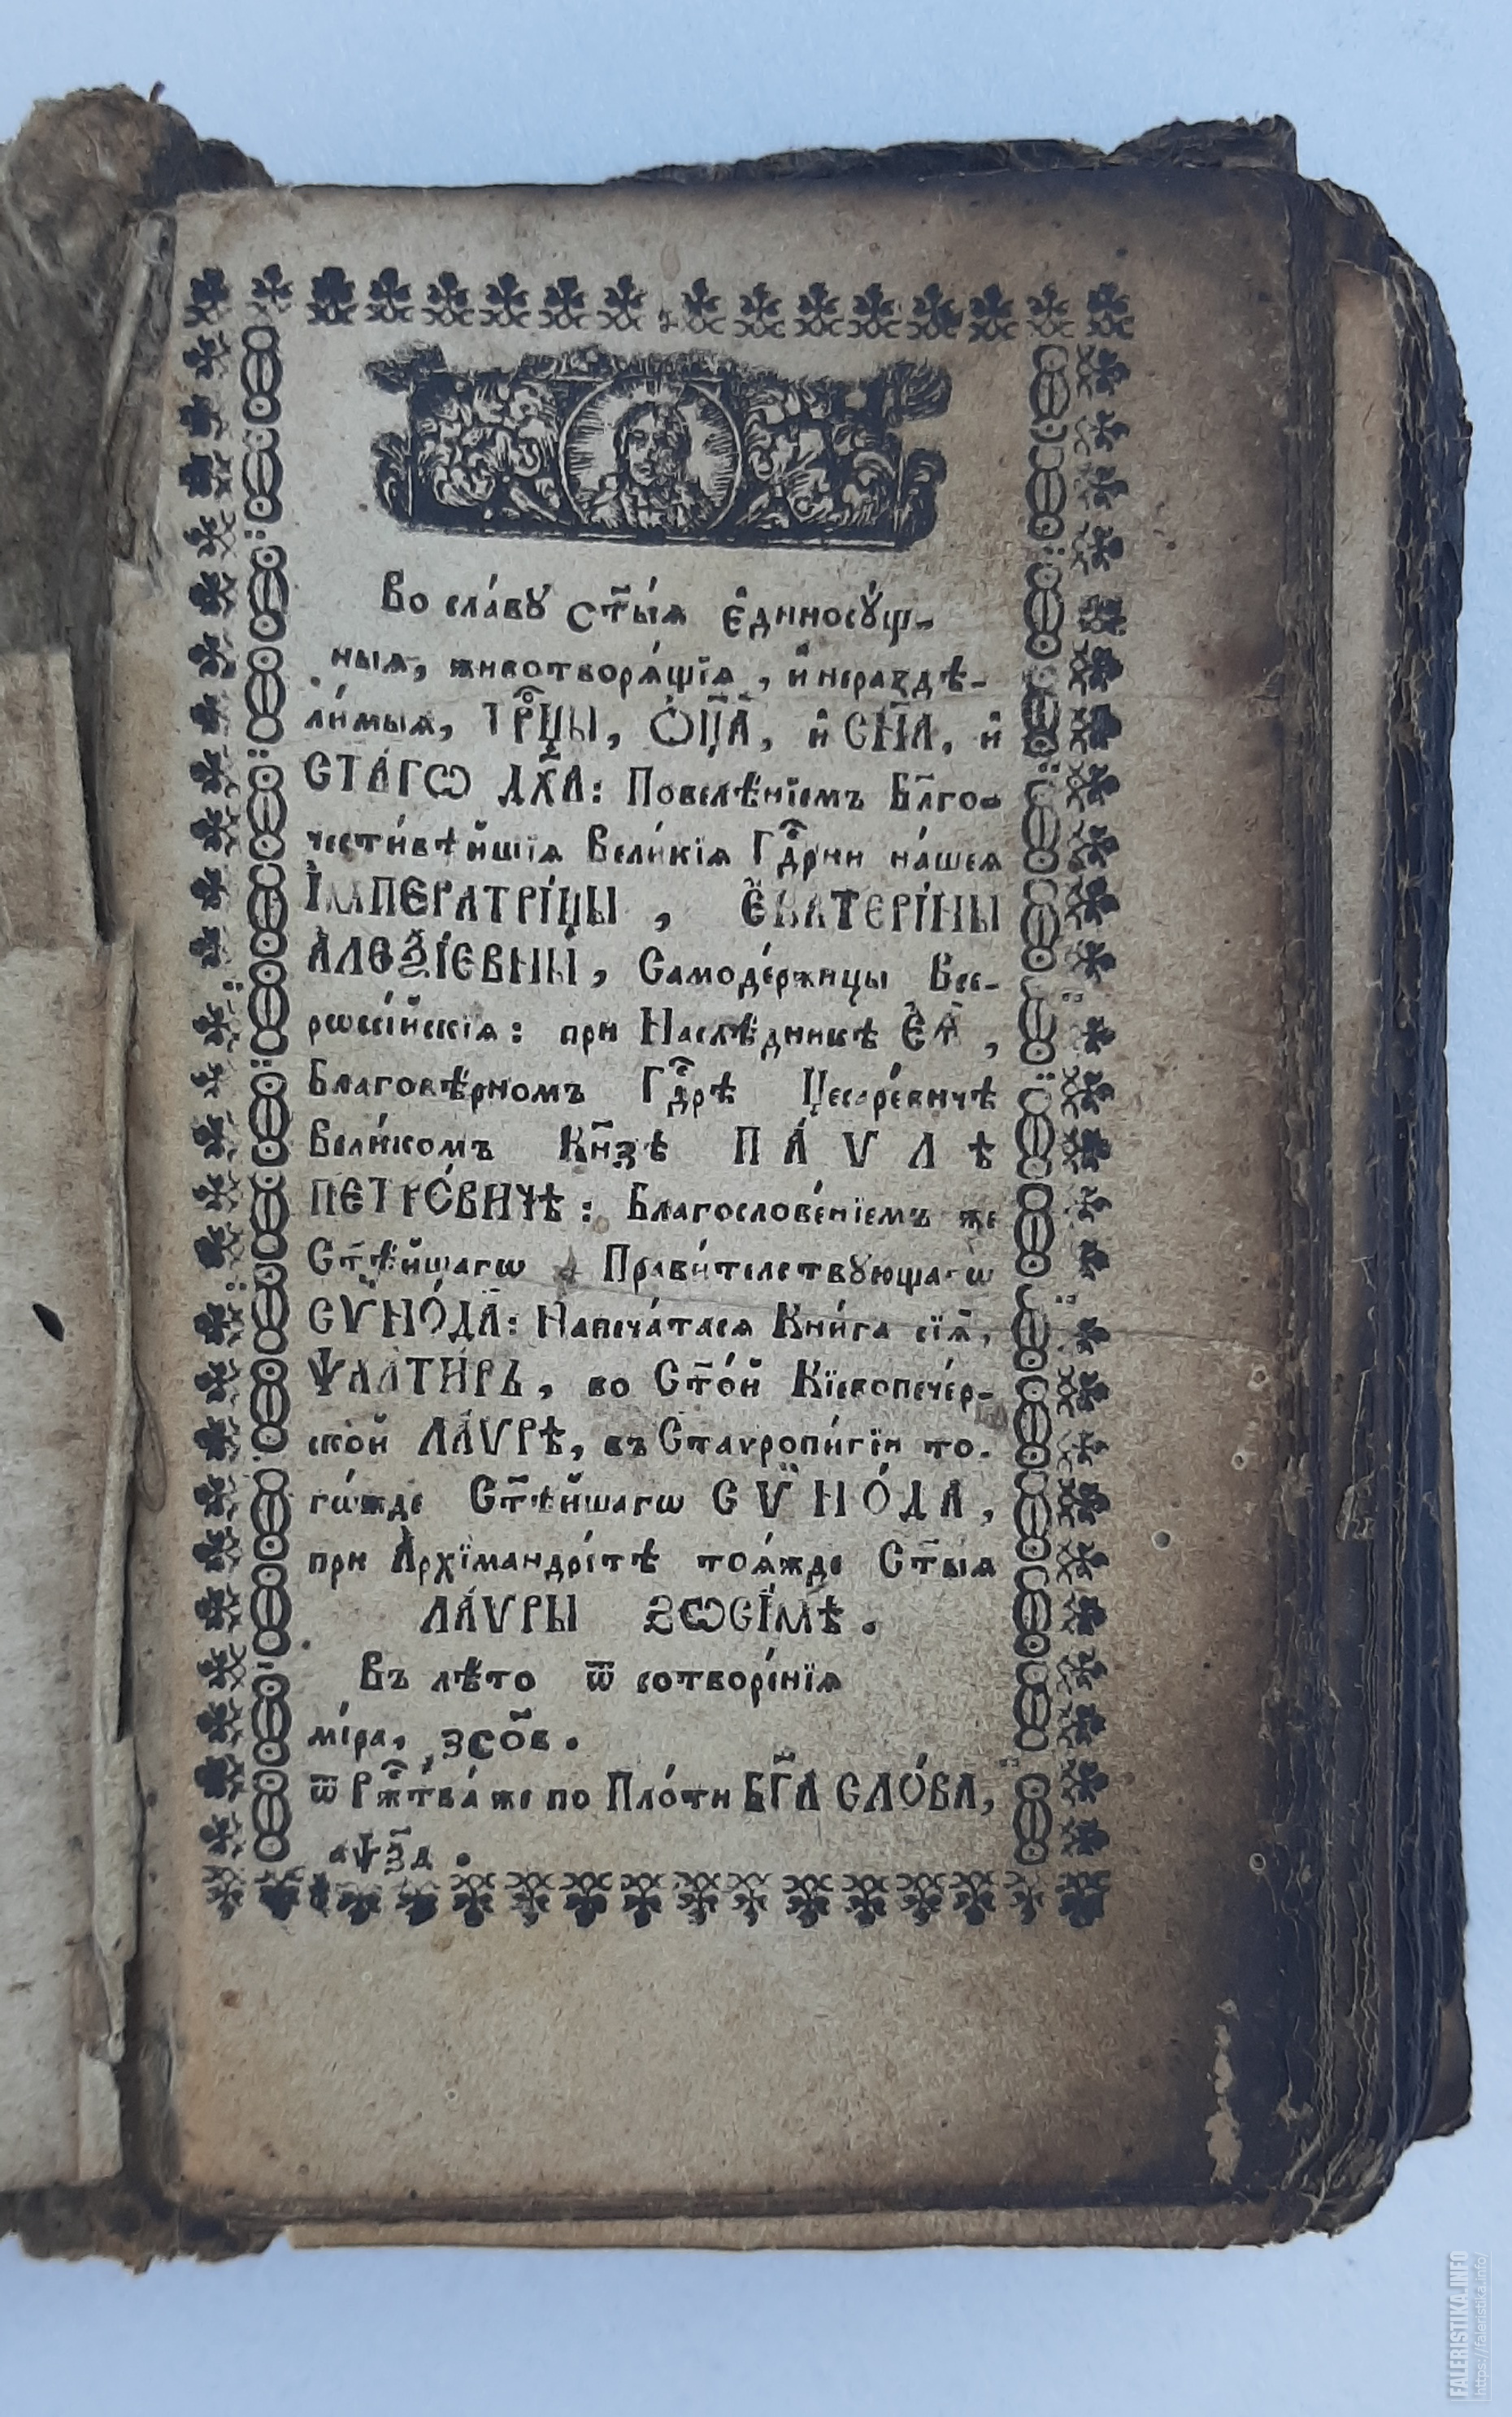 Во сла́вꙋ ст҃ы́ѧ є҆диносꙋ́щ-
ныѧ, животворѧ́щїѧ, и҆ нераздѣ-
ли́мыѧ, ТРⷪ҇ЦЫ, Ѻ҆Ц҃А̀, и҆ СН҃А, и҆
СТА́ГѠ ДХ҃А: Повелѣ́нїемъ Бл҃го-
чести́вѣйшїѧ Вели́кїѧ Гдⷭ҇рни на́шеѧ
І҆МПЕРАТРІ́ЦЫ, Є҆КАТЕРІ́НЫ
А҆ЛЕѮІ́ЕВНЫ, Самоде́ржицы Все-
рѡссі́йскїѧ: при Наслѣ́дникѣ Є҆Ѧ̀,
Благовѣ́рномъ Гдⷭ҇рѣ Цесаре́вичѣ
Вели́комъ Кн҃зѣ ПА́ѴЛѢ
ПЕТРО́ВИЧѢ: Благослове́нїемъ же
Ст҃ѣ́йшагѡ Прави́телствꙋющагѡ
СѴНО́ДА: Напеча́тасѧ Кни́га сїѧ̀,
ѰАЛТИ́РЬ, во Ст҃о́й Кїевопече́р-
ской ЛА́ѴРѢ, въ Стаѵропи́гїи то-
гѡ́жде Ст҃ѣ́йшагѡ СѴНО́ДА,
при А҆рхїмандрі́тѣ тоѧ́жде Ст҃ы́ѧ
ЛА́ѴРЫ ЗѠСІ́МѢ.
Въ лѣ́то ѿ сотворе́нїѧ
мі́ра, ҂зсо҃в.
ѿ Ржⷭ҇тва́ же по Пло́ти БГ҃А СЛО́ВА,
аѱѯ҃д.
FALERISTIKA.INFO
https://faleristika.info/